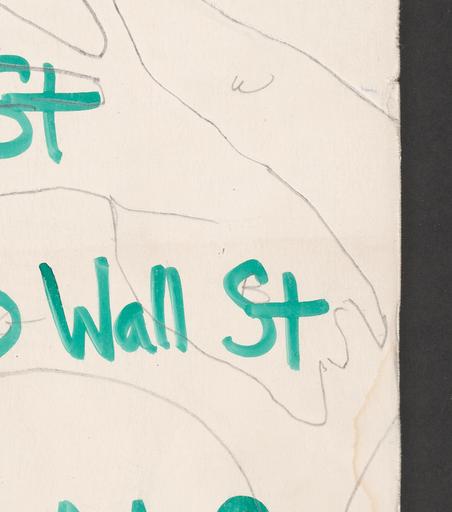 St
Wall St